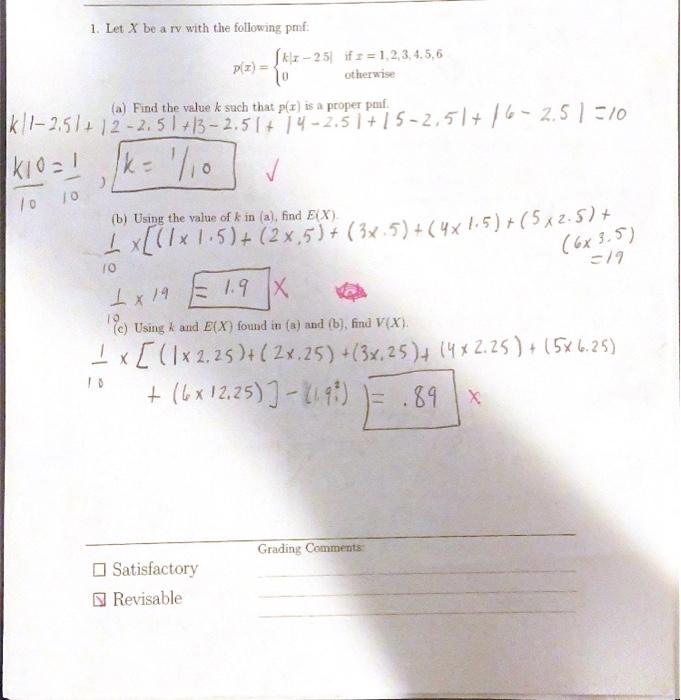 1. Let X be a rv with the following pmf:
p(x) = { k|x − 2.5| if x = 1, 2, 3, 4, 5, 6
0 otherwise
(a) Find the value k such that p(x) is a proper pmf.
k|1-2.5|+|2-2.5|+|3-2.5|+|4-2.5|+|5-2.5|+|6-2.5|=10
k10/10 = 1/10 , k = 1/10 ✓
(b) Using the value of k in (a), find E(X).
1/10 x[(1x1.5)+(2x.5)+(3x.5)+(4x1.5)+(5x2.5)+
(6x3.5)
=19
1/10 x 19 = 1.9 X
(c) Using k and E(X) found in (a) and (b), find V(X).
1/10 x[(1x2.25)+(2x.25)+(3x.25)+(4x2.25)+(5x6.25)
+(6x12.25)]-(1.9²) = .89 X
Grading Comments:
☐ Satisfactory
☒ Revisable